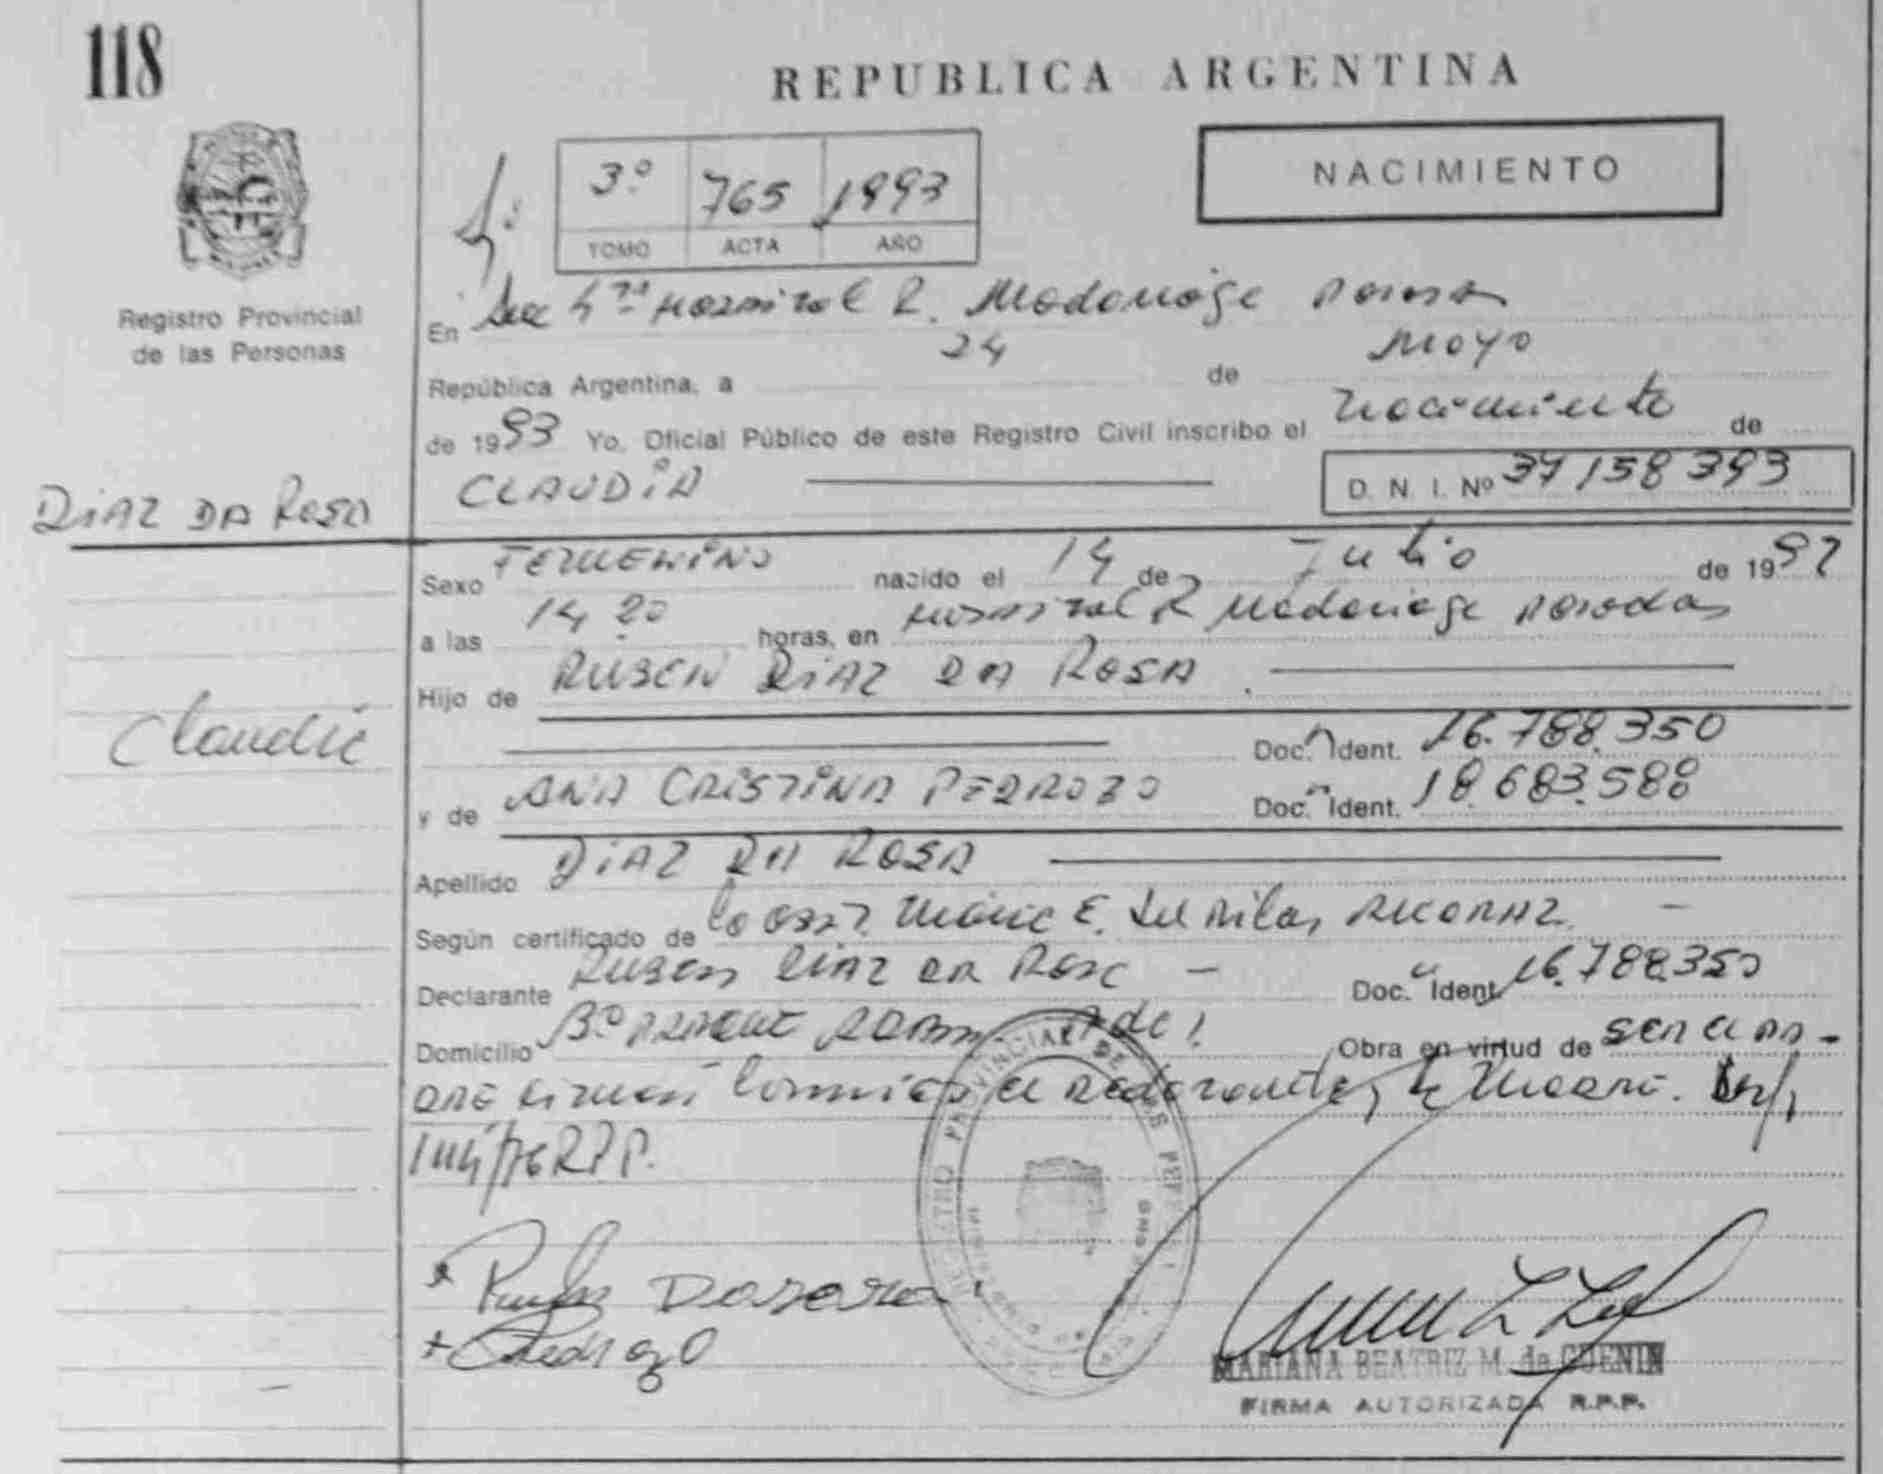 118
REPUBLICA ARGENTINA
NACIMIENTO
3º 765 1993
TOMO ACTA AÑO
Registro Provincial
de las Personas
En Sec 4ta Hospital R. Madariaga Posadas
República Argentina, a 24 de Mayo
de 1993 Yo, Oficial Público de este Registro Civil inscribo el nacimiento de
CLAUDIA D. N. I. Nº 37158393
DIAZ DA ROSA
Sexo FEMENINO nacido el 14 de Julio de 1992
a las 14 20 horas, en Hospital R Madariaga Posadas
Hijo de RUBEN DIAZ DA ROSA
Claudia
Doc. Ident. 16.788.350
y de ANA CRISTINA PEDROZO Doc. Ident. 18.683.588
Apellido DIAZ DA ROSA
Según certificado de la Obst. Maria E. del Pilar
Declarante Ruben DIAZ DA Rosa Doc. Ident. 16.788350
Domicilio Bº Obra en virtud de
REGISTRO PROVINCIAL DE LAS PERSONAS
MARIANA BEATRIZ M. de GUENIN
FIRMA AUTORIZADA R.P.P.